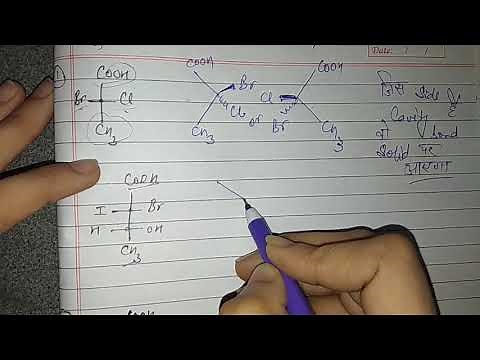 Date: / /
1)
COOH
Br Cl
CH3
COOH
Br
Cl
CH3
or
COOH
Cl
Br
CH3
जिस side
Cavity है
वो bond
solid पर
आएगा
COOH
I Br
H OH
CH3